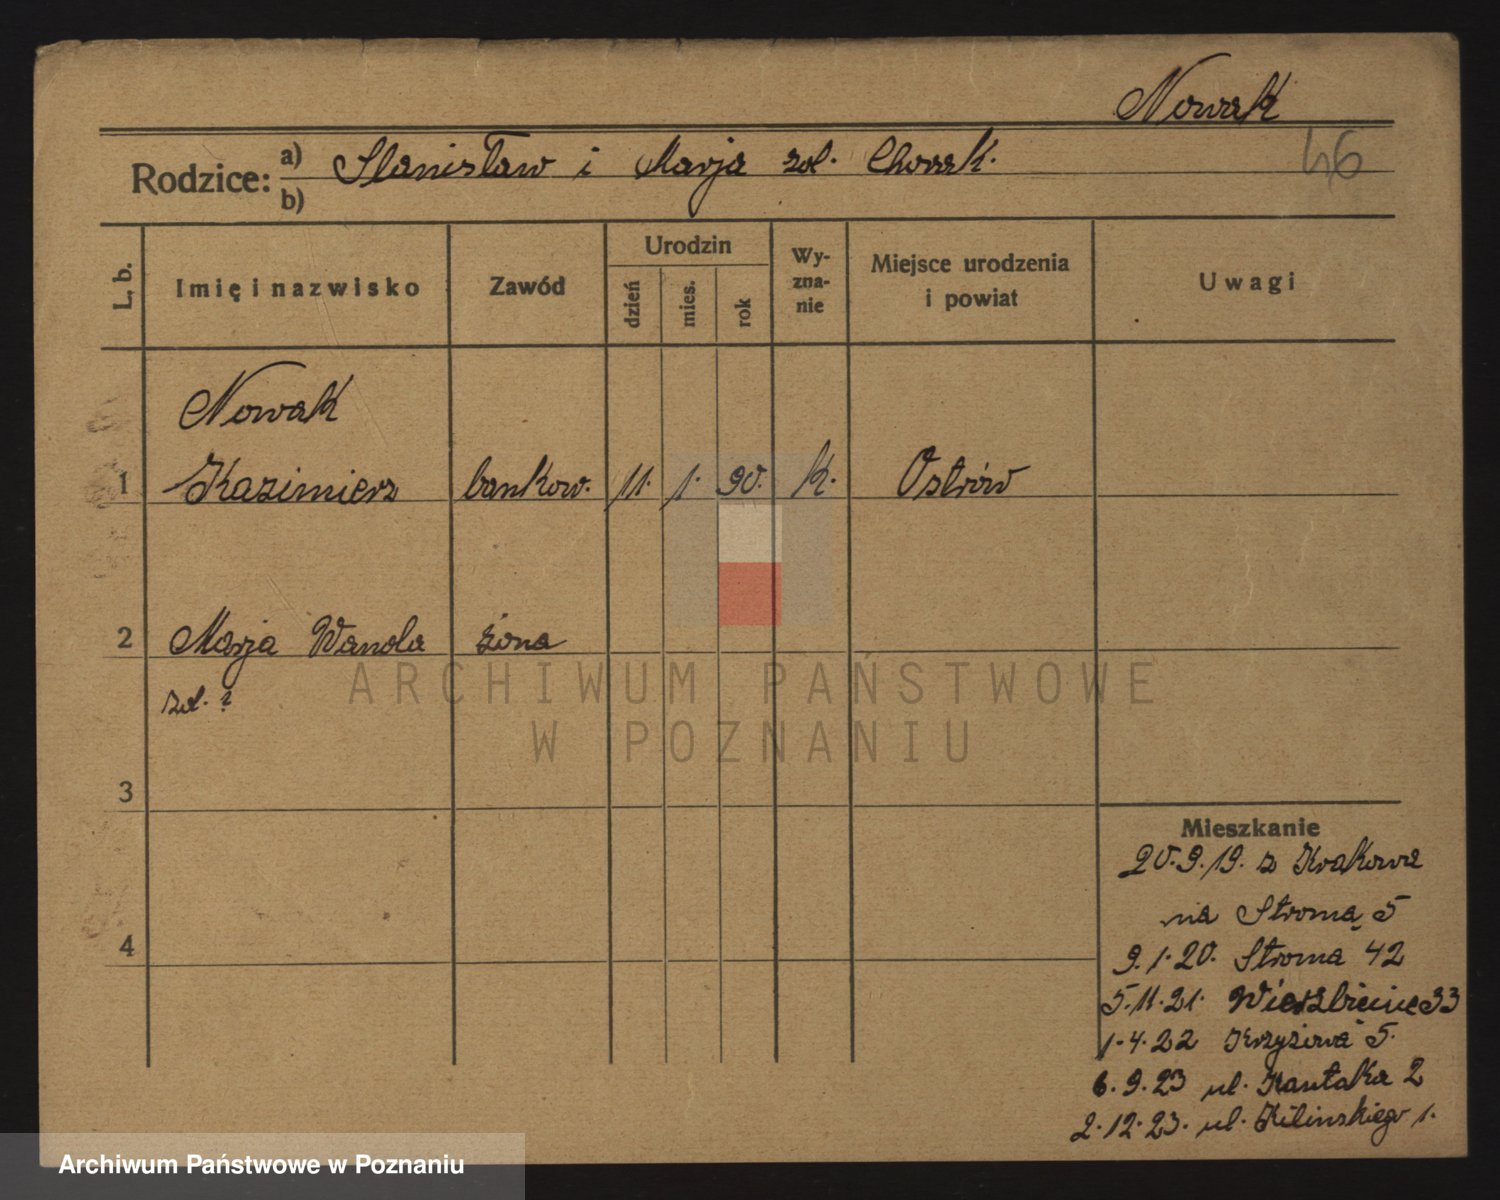 Nowak
46
Rodzice: a) Stanisław i Marja zd.
b)
L. b.
Imię i nazwisko
Zawód
Urodzin
dzień
mies.
rok
Wy-
zna-
nie
Miejsce urodzenia
i powiat
Uwagi
Nowak
1 Kazimierz bankow. 11. 1. 90. k. Ostrów
2 Marja Wanda żona
zd. ?
3
4
Mieszkanie
20.9.19. z Krakowa
na Stromą 5
9.1.20. Stroma 42
5.11.21. Wierzbięcice 33
1.4.22 Krzyżowa 5.
6.9.23 ul. Kantaka 2
2.12.23. ul. Kilińskiego 1.
ARCHIWUM PAŃSTWOWE
W POZNANIU
Archiwum Państwowe w Poznaniu